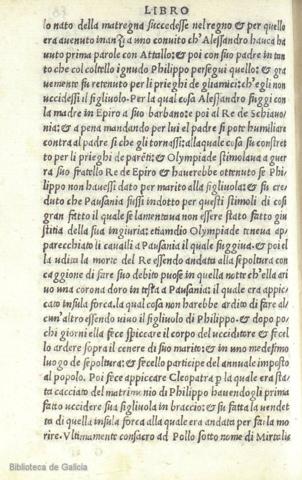 LIBRO
lo nato della matregna succedesse nel regno & per quello
era auenuto inanzi a uno conuito ch'Alessandro hauea ha
uuto prima parole con Attallo: & poi con suo padre in tan
to che col coltello ignudo Philippo persegui quello: & gra
uemente fu retenuto per li prieghi de gli amici: ch'egli non
uccidessi il figliuolo. Per la qual cosa Alessandro fuggi con
la madre in Epiro a suo barbano: poi al Re de Schiauo/
nia: & a pena mandando per lui el padre si pote humiliare
contra al padre si che gli tornassi: alla quale cosa fu constret
to per li prieghi de parēti: & Olympiade stimolaua a guer
ra suo fratello Re de Epiro & haverebbe ottenuto se Phi
lippo non hauessi dato per marito alla figliuola: & su cre
duto che Pausania fussi indotto per questi stimoli di cosi
gran fatto il quale se lamentaua non essere stato fatto giu
stitia della sua ingiuria: etiamdio Olympiade teneua ap
parecchiato i cavalli a Pausania il quale fuggiua: & poi el
la udita la morte del Re essendo andata alla sepoltura con
caggione di fare suo debito puose in quella notte ch'ella ari
uo una corona doro in testa a Pausania: il quale era appic
cato insula forca. la qual cosa non harebbe ardito di fare al
cun'altro essendo uiuo il figliuolo di Philippo. & dopo po/
chi giorni ella fece spiccare il corpo del ucciditore & fecel
lo ardere sopra il cenere di suo marito: & in uno medesimo
luogo de sepoltura: & fecello participe del annuale imposto
al popolo. Poi fece appiccare Cleopatra p la quale era sta
ta cacciata del matrimonio di Philippo hauendogli prima
fatto uccidere sua figliuola in braccio: & su fatta la uendet
ta di quella insula forca alla quale era andata per farla mo
rire. Vltimamente consacro ad Pollo sotto nome di Mirtalis
Biblioteca de Galicia